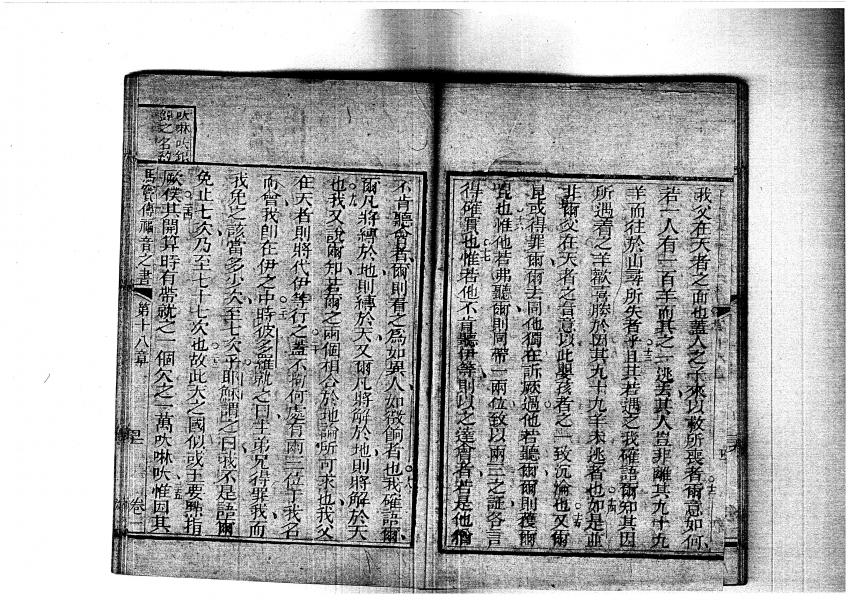 我父在天者之面也蓋人之子來以救所喪者爾意如何
若一人有一百羊而其之一迯去其人豈非離其九十九
羊而往於山尋所失者乎且其若遇之我確語爾知其因
所遇着之羊歡喜勝於因其九十九羊未迯者也如是並
非爾父在天者之旨意以此嬰孩者之一致沉淪也又爾
昆或得罪爾爾去同他獨在訴厥過他若聽爾爾則獲爾
昆也惟他若弗聽爾則同帶一兩位致以兩三之証各言
得確實也惟若他不肯聽伊等則以之達會者若是他猶
不肯聽會者爾則看之為如異人如徵餉者也我確語爾
爾凡將縛於地則縛於天又爾凡將解於地則將解於天
也我又說爾知若爾之兩個相合於地諭所可求也我父
在天者則將代伊等行之蓋不拘何處有兩三位于我名
而會我即在伊之中時彼多羅就之曰主弟兄得罪我而
我免之該當多少次至七次乎耶穌謂之曰我不是語爾
免止七次乃至七十七次也故此天之國似或王要與指
厥僕其開算時有帶就之一個欠之一萬吠啉吠惟因其
馬竇傳福音之書 第十八章 卷一
吠啉吠銀
之名